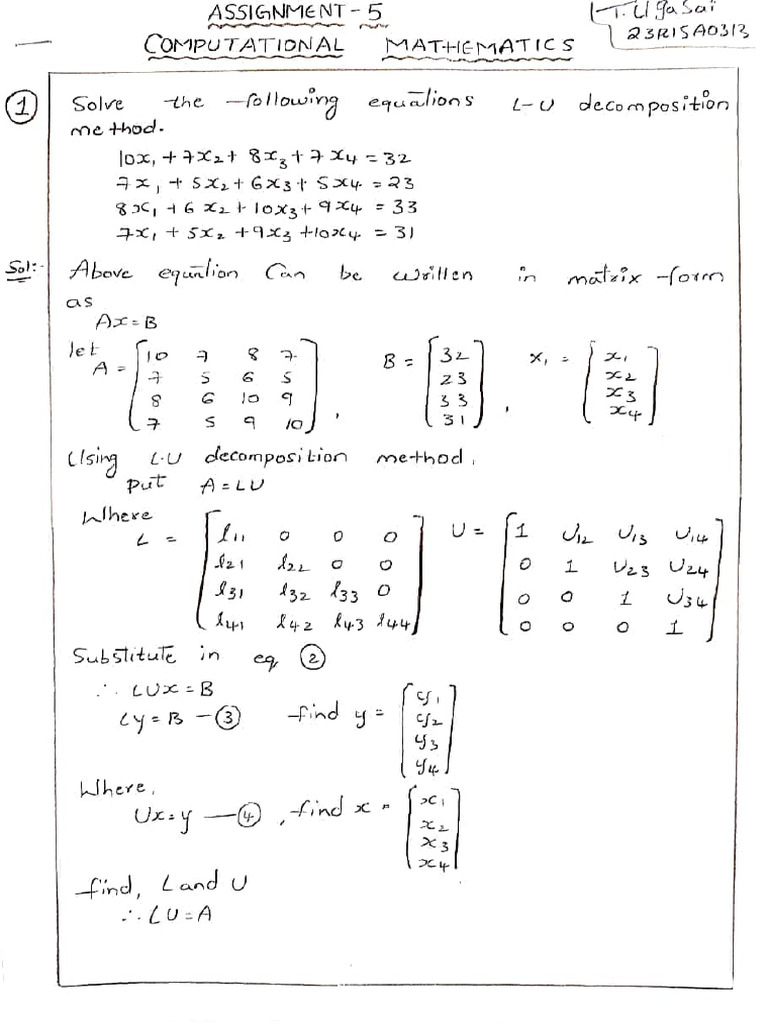 ASSIGNMENT-5
T. Uga Sai
23R15A0313
COMPUTATIONAL MATHEMATICS
① Solve the following equations L-U decomposition
method.
10x₁ + 7x₂ + 8x₃ + 7x₄ = 32
7x₁ + 5x₂ + 6x₃ + 5x₄ = 23
8x₁ + 6x₂ + 10x₃ + 9x₄ = 33
7x₁ + 5x₂ + 9x₃ + 10x₄ = 31
Sol:- Above equation Can be written in matrix form
as
Ax=B
let A = [10 7 8 7; 7 5 6 5; 8 6 10 9; 7 5 9 10], B = [32; 23; 33; 31], x₁ = [x₁; x₂; x₃; x₄]
Using L.U decomposition method,
put A=LU
Where
L = [l₁₁ 0 0 0; l₂₁ l₂₂ 0 0; l₃₁ l₃₂ l₃₃ 0; l₄₁ l₄₂ l₄₃ l₄₄] U = [1 U₁₂ U₁₃ U₁₄; 0 1 U₂₃ U₂₄; 0 0 1 U₃₄; 0 0 0 1]
Substitute in eq ②
∴ LUx = B
Ly = B - ③ find y = [y₁; y₂; y₃; y₄]
Where,
Ux=y — ④, find x = [x₁; x₂; x₃; x₄]
find, L and U
∴ LU=A